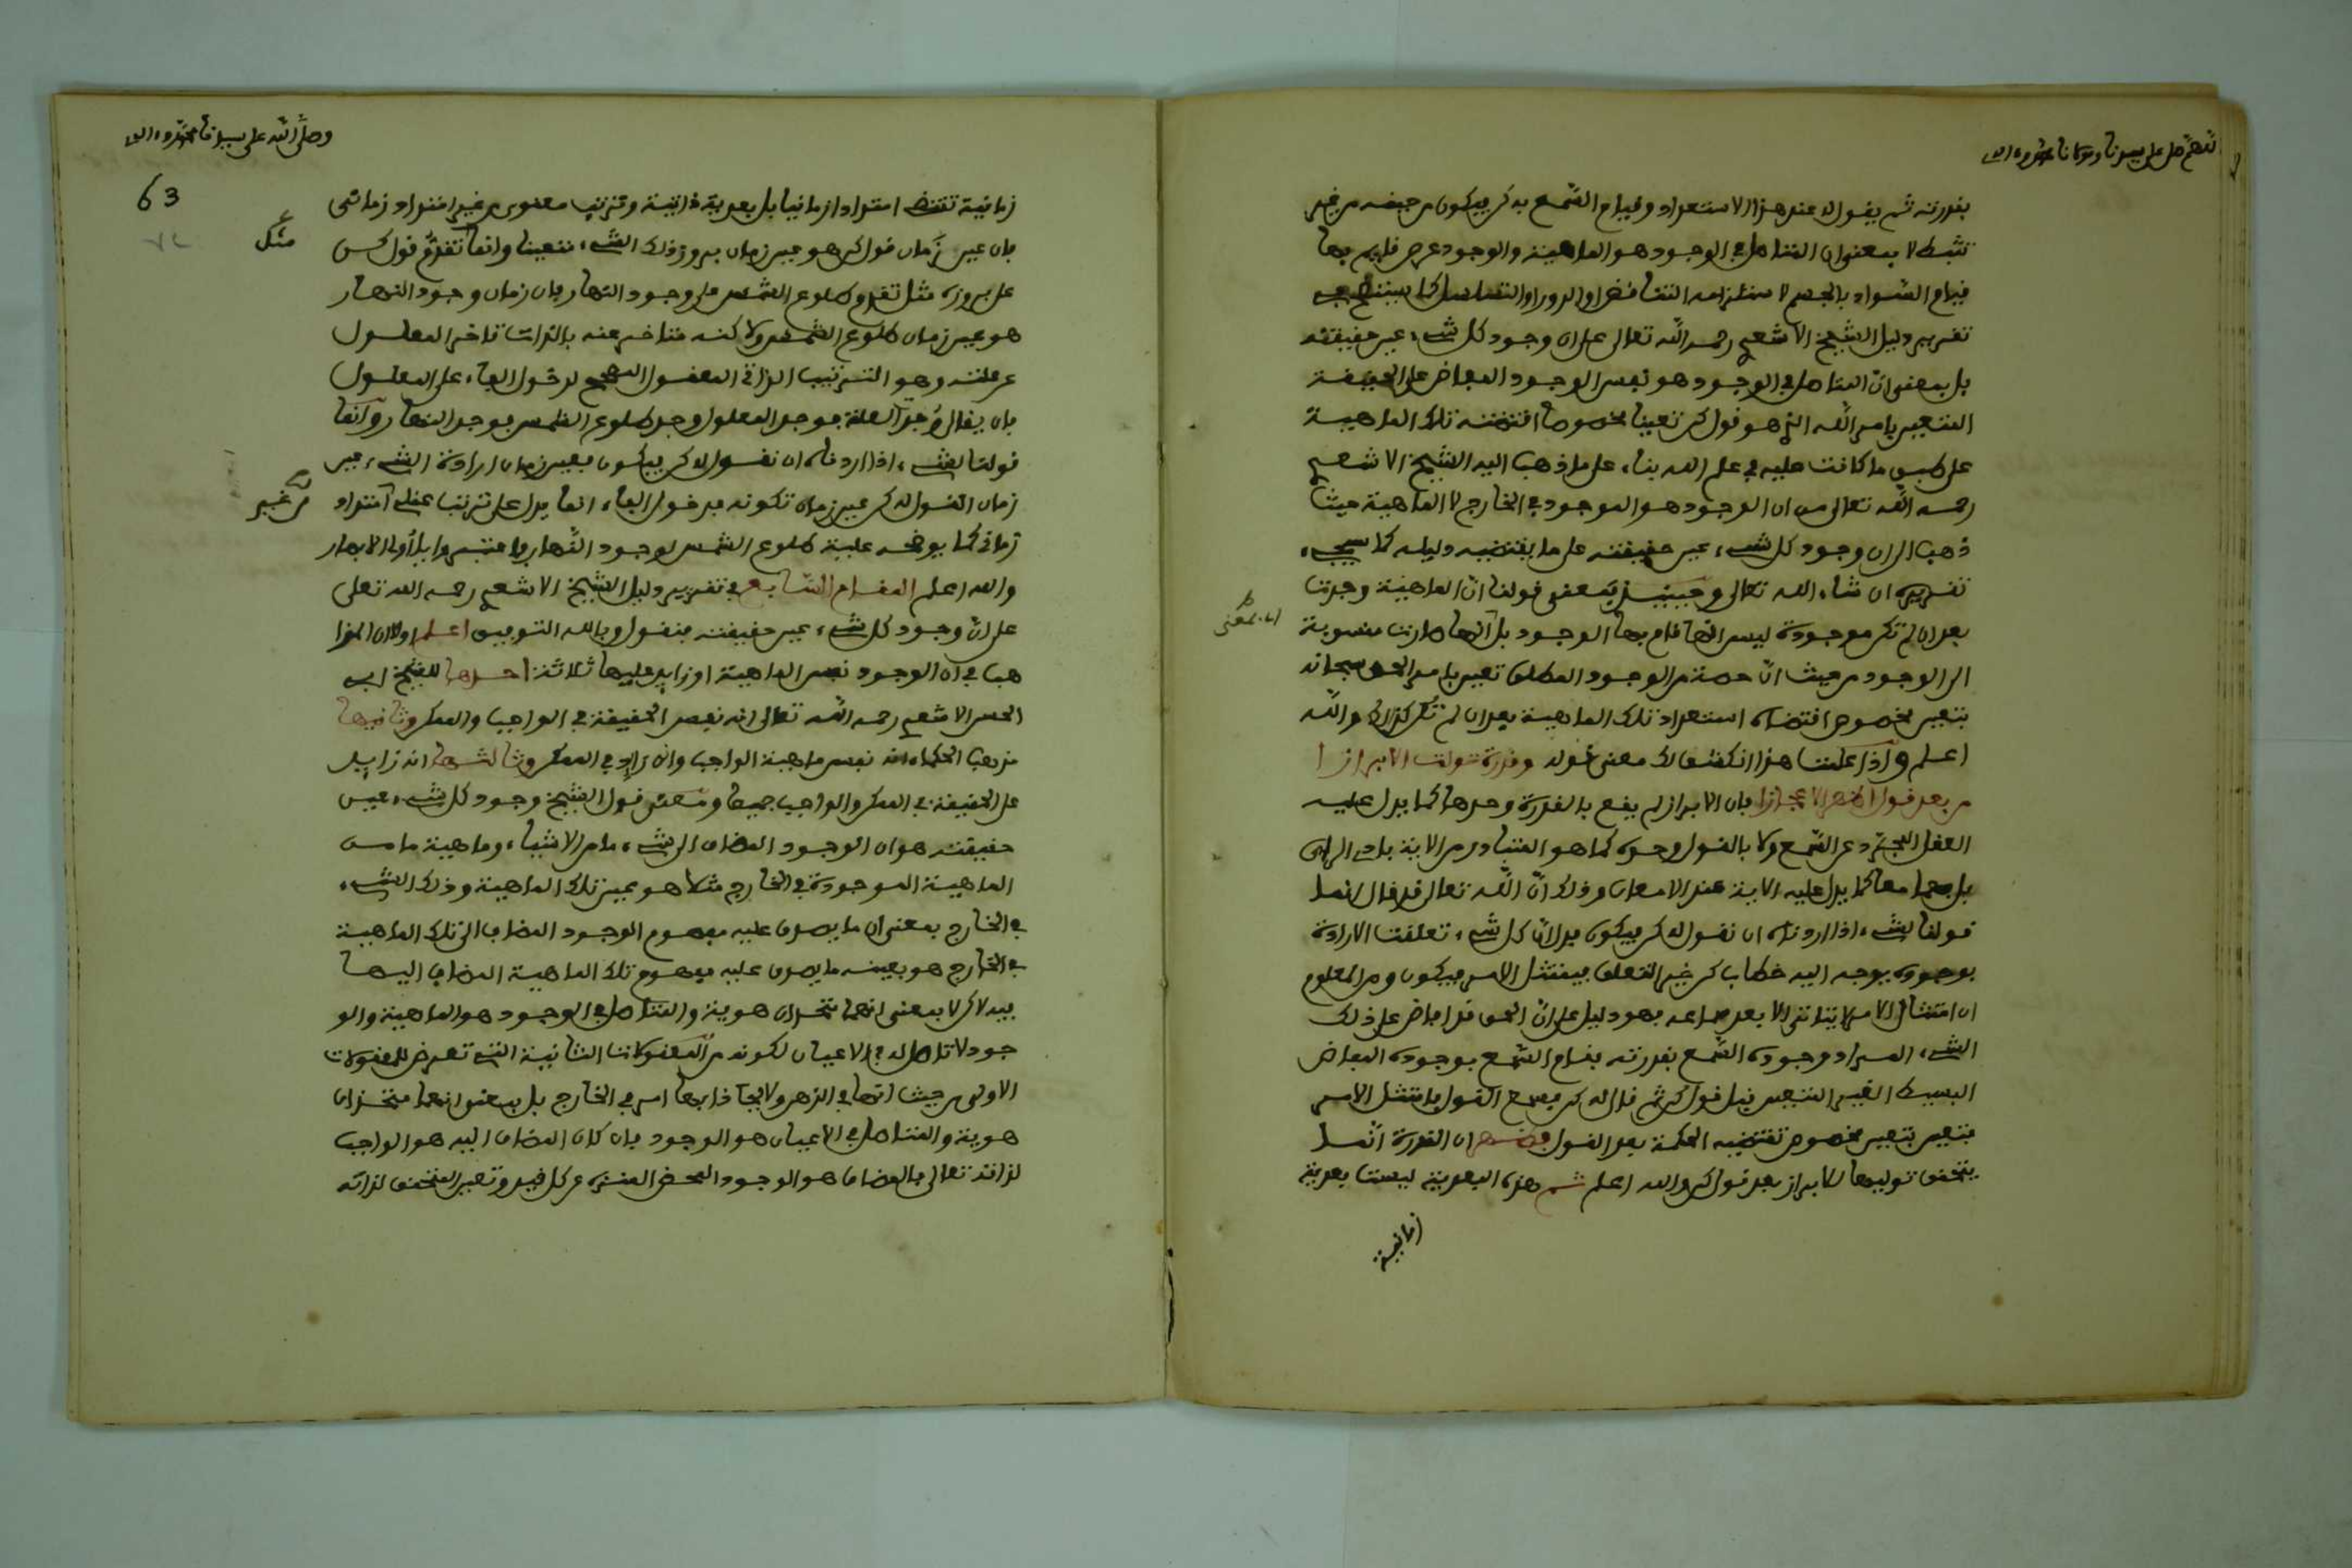 اللهم صل على سيدنا ومولانا محمد وءاله
بقدرته ثم يقول له عند هذا الاستعداد وقيام السمع به كن فيكون من حينه من غير
تثبط لا بمعنى ان المتاصل في الوجود هو الماهية والوجود عرض قايم بها
قيام السواد بالجسم لاستلزامه التناقض او الدور او التسلسل كما سيتضح في
تقرير دليل الشيخ الاشعري رحمه الله تعالى على ان وجود كل شيء عين حقيقته
بل بمعنى ان المتاصل في الوجود هو نفس الوجود المفاض على الحقيقة
المتعين بامر الله الذي هو قول كن تعينا مخصوصا اقتضته تلك الماهية
على طبق ما كانت عليه في علم الله بناء على ما ذهب اليه الشيخ الاشعري
رحمه الله تعالى من ان الوجود هو الموجود في الخارج لا الماهية حيث
ذهب الى ان وجود كل شيء عين حقيقته على ما يقتضيه دليله كما سيجيء
تقريره ان شاء الله تعالى وحينئذ يمعنى قولنا ان الماهية وجدت
بعد ان لم تكن موجودة ليس انها قام بها الوجود بل انها صارت منسوبة
الى الوجود من حيث ان حصة من الوجود المطلق تعين بامر الحق سبحانه
بتعين مخصوص اقتضاه استعداد تلك الماهية بعد ان لم تكن كذلك والله
اعلم واذا علمت هذا انكشف لك معنى قوله وقدرة تولت الابرازا
من بعد قول اظهر الاعجازا فان الابراز لم يقع بالقدرة وحدها كما يدل عليه
العقل المجرد عن السمع ولا بالقول وحده كما هو المتبادر من الاية بادي الراى
بل بهما معا كما يدل عليه الاية عند الامعان وذلك ان الله تعالى قد قال انما
قولنا لشيء اذا اردناه ان نقول له كن فيكون فدل ان كل شيء تعلقت الارادة
بوجوده يوجه اليه خطاب كن غير التعلق فيمتثل الامر فيكون ومن المعلوم
ان امتثال الامر لا يتاتى الا بعد سماعه فهو دليل على ان الحق قد افاض على ذلك
الشيء المراد وجوده السمع بقدرته فقام السمع بوجوده المفاض
البسيط الغير المتعين قبل قول كن ثم قال له كن فسمع القول فامتثل الامر
فتعين بتعين مخصوص تقتضيه الحكمة بعد القول ان القدرة انما
يتحقق توليها للابراز بعد قول كن والله اعلم ثم هذه البعدية ليست بعدية
زمانية
اى بمعنى
وصلى الله على سيدنا محمد وءاله
63
زمانية تقتضي امتدادا زمانيا بل بعدية ذاتية وترتيب معنوي من غير امتداد زماني
فان عين زمان قول كن هو عين زمان بروز ذلك الشيء متعينا وانما تقدم قول كن
على بروزه مثل تقدم طلوع الشمس على وجود النهار فان زمان وجود النهار
هو عين زمان طلوع الشمس ولاكنه متاخر عنه بالذات تاخر المعلول
عن علته وهو الترتيب الذاتي المعقول المصحح لدخول الفاء على المعلول
بان يقال وجد العلة فوجد المعلول وجد طلوع الشمس فوجد النهار وانما
قولنا لشيء اذا اردناه ان نقول له كن فيكون فعين زمان ارادة الشيء عين
زمان القول له كن عين زمان تكونه فدخول الفاء انما يدل على ترتب عقلي امتداد
زماني كما يوضحه علية طلوع الشمس لوجود النهار فاعتبروا يا أولى الابصار
والله اعلم المقام السابع في تقرير دليل الشيخ الاشعري رحمه الله تعلى
على ان وجود كل شيء عين حقيقته فنقول وبالله التوفيق اعلم اولا ان المذا
هب في ان الوجود نفس الماهية او زايد عليها ثلاثة احدها للشيخ ابي
الحسن الاشعري رحمه الله تعالى انه نفس الحقيقة في الواجب والممكن وثانيها
مذهب الحكماء انه نفس ماهية الواجب وانه زايد في الممكن وثالثها انه زايد
على الحقيقة في الممكن والواجب جميعا ومعنى قول الشيخ وجود كل شيء عين
حقيقته هو ان الوجود المضاف الى شيء ما من الاشياء وماهية ما من
الماهية الموجودة في الخارج مثلا هو عين تلك الماهية وذلك الشيء
في الخارج بمعنى ان ما يصدق عليه مفهوم الوجود المضاف الى تلك الماهية
في الخارج هو بعينه ما يصدق عليه مفهوم تلك الماهية المضاف اليها
بيد لاكن لا بمعنى انهما متحدان هوية والمتاصل في الوجود هو الماهية والو
جود لا تاصل له في الاعيان لكونه من المعقولات الثانية التي تعرض للمعقولات
الاولى من حيث انها في الذهن ولا يحاذى بها امر في الخارج بل بمعنى انهما متحدان
هوية والمتاصل في الاعيان هو الوجود فان كان المضاف اليه هو الواجب
لذاته تعالى فالمضاف هو الوجود المحض المنزه عن كل قيد وتعين المتحقق لذاته
مثل
من غير